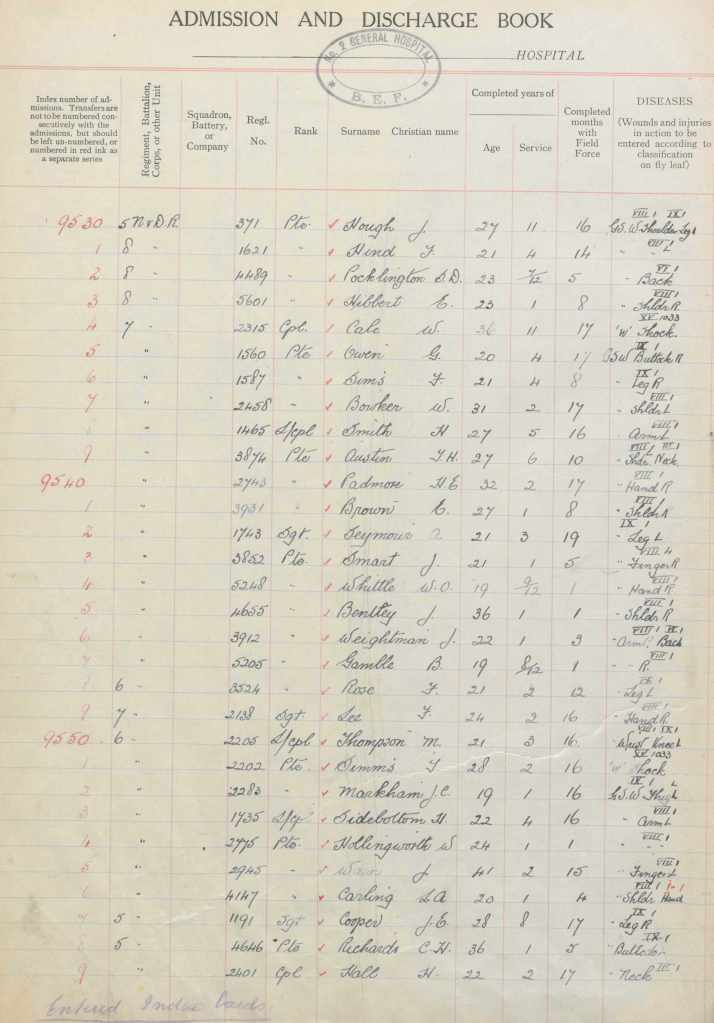 ADMISSION AND DISCHARGE BOOK
No. 2 GENERAL HOSPITAL
B. E. F.
HOSPITAL
Index number of admissions. Transfers are not to be numbered consecutively with the admissions, but should be left un-numbered, or numbered in red ink as a separate series
Regiment, Battalion, Corps, or other Unit
Squadron, Battery, or Company
Regl. No.
Rank
Surname Christian name
Completed years of
Age Service
Completed months with Field Force
DISEASES
(Wounds and injuries in action to be entered according to classification on fly leaf)
VIII 1 IX 1
9530 5 N & D. R. 371 Pte Hough J. 27 11 16 G.S.W. Shoulder Leg
VIII 1
1 8 " 1621 " Hind F. 21 4 14 " " L
VI 1
2 8 " 4489 " Pocklington S.D. 23 7/12 5 " Back
VIII 1
3 8 " 5601 " Hibbert E. 23 1 8 " Shldr R.
XV 1033
4 7 " 2315 Cpl. Cale W. 36 11 17 'W' Shock.
IX 1
5 " 1560 Pte Owen G. 20 4 17 GSW Buttock R
IX 1
6 " 1587 " Sims F. 21 4 8 " Leg R
VIII 1
7 " 2458 " Bowker W. 31 2 17 " Shldr L
VIII 1
" 1465 L/cpl Smith H 27 5 16 " Arm L
VIII 1 III 1
9 " 3874 Pte Austin T.H. 27 6 10 " Shdr Neck.
VIII 1
9540 " 2743 " Padmore H E 32 2 17 " Hand R
VIII 1
1 " 3931 " Brown E. 27 1 8 " Shldr R
IX 1
2 " 1743 Sgt. Seymour 21 3 19 " Leg L
VIII 4
3 " 3852 Pte. Smart J. 21 1 5 " Finger R
VIII 1
4 " 5248 " Whittle W.O. 19 9/12 1 " Hand R.
VIII 1
5 " 4655 " Bentley J. 36 1 1 " Shldr R
VIII 1 VI 1
6 " 3912 " Weightman J. 22 1 3 " Arm Back
VIII 1
7 " 5205 " Gamble B. 19 8/12 1 " " R.
IX 1
6 " 3524 " Rose F. 21 2 12 " Leg L
VIII 1
9 7 " 2138 Sgt Lee F. 24 2 16 " Hand R.
VIII 1 IX 1
9550 6 " 2205 L/cpl Thompson M. 21 3 16 Knee L
XV 1033
1 " 2202 Pte. Simms 28 2 16 'W' Shock
IX 1
2 " 2283 " Markham J.C. 19 1 16 G.S.W. Thigh L
VIII 1
3 " 1735 L/cpl Sidebottom H. 22 4 16 " Arm L
VIII 1
4 " 2775 Pte. Hollingworth W 24 1 1 " "
VIII 1
5 " 2945 " J 41 2 15 " Finger L
VIII 1
" 4147 " Carling L A 20 1 4 " Shldr Hand
IX 1
7 5 " 1191 Sgt Cooper J.E. 28 8 17 " Leg R
IX 1
5 " 4646 Pte Richards C.H. 36 1 5 " Buttock
III 1
9 " 2401 Cpl Hall H. 22 2 17 " Neck
Entered Index Cards